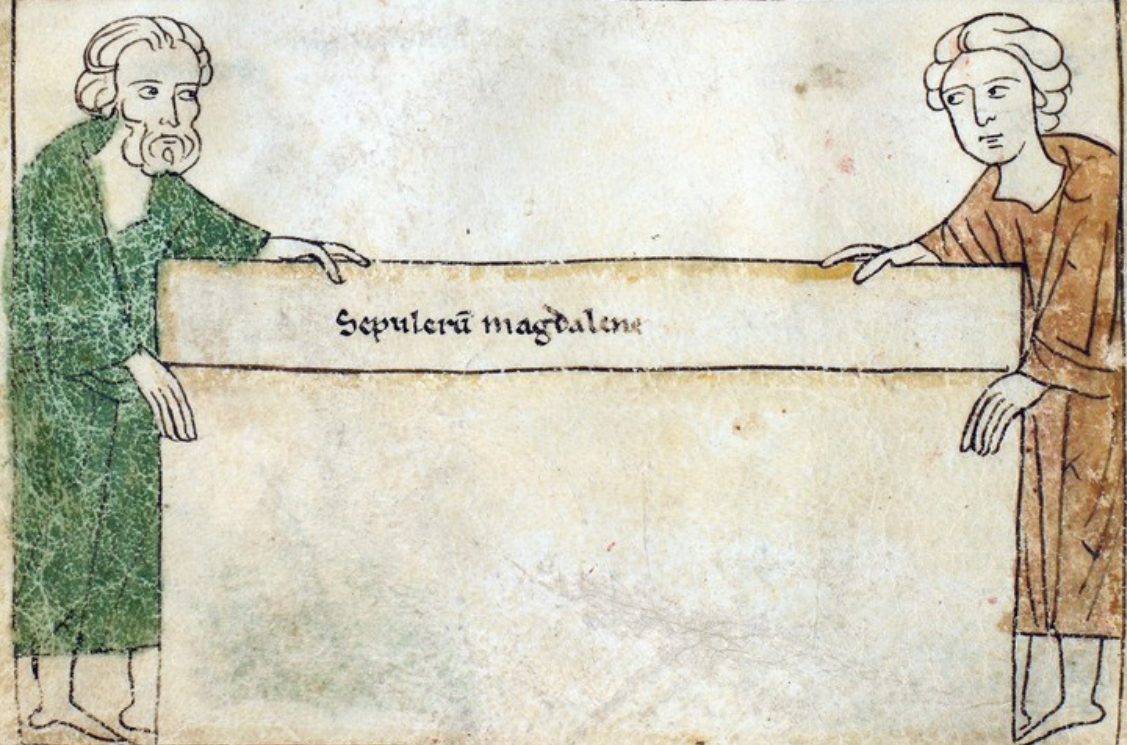 Sepulcrū magdalene